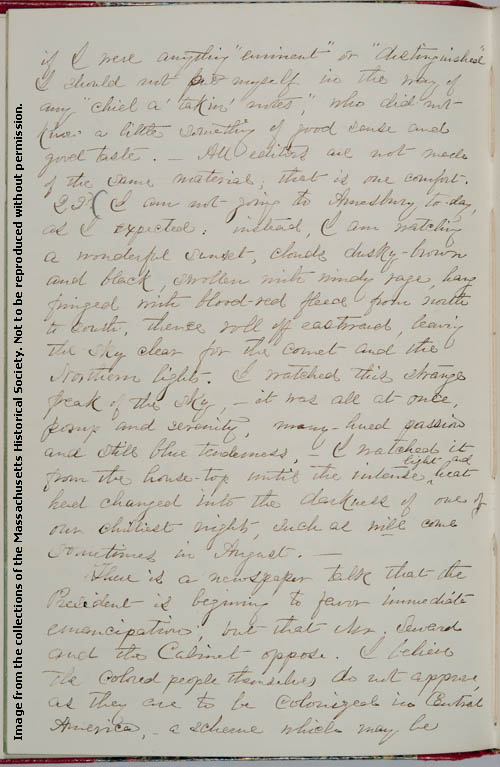 Image from the collections of the Massachusetts Historical Society. Not to be reproduced without permission.
if I were anything "eminent" or "distinguished"
I should not put myself in the way of
any "chiel a' takin' notes", who did not
know a little something of good sense and
good taste. — All editors are not made
of the same material; that is one comfort.
22( I am not going to Amesbury to-day,
as I expected: instead, I am watching
a wonderful sunset, clouds dusky-brown
and black, swollen with windy rage, hang
fringed with blood-red fleece from north
to south, thence roll off eastward, leaving
the sky clear for the comet and the
Northern lights. I watched this strange
freak of the sky, — it was all at once,
pomp and serenity, many-hued passion
and still blue tenderness, — I watched it
from the house-top until the intense light and heat
had changed into the darkness of one of
our chilliest nights, such as will come
sometimes in August. —
There is a newspaper talk that the
President is begining to favor immediate
emancipation, but that Mr. Seward
and the Cabinet oppose. I believe
the colored people themselves do not approve,
as they are to be colonized in Central
America, — a scheme which may be